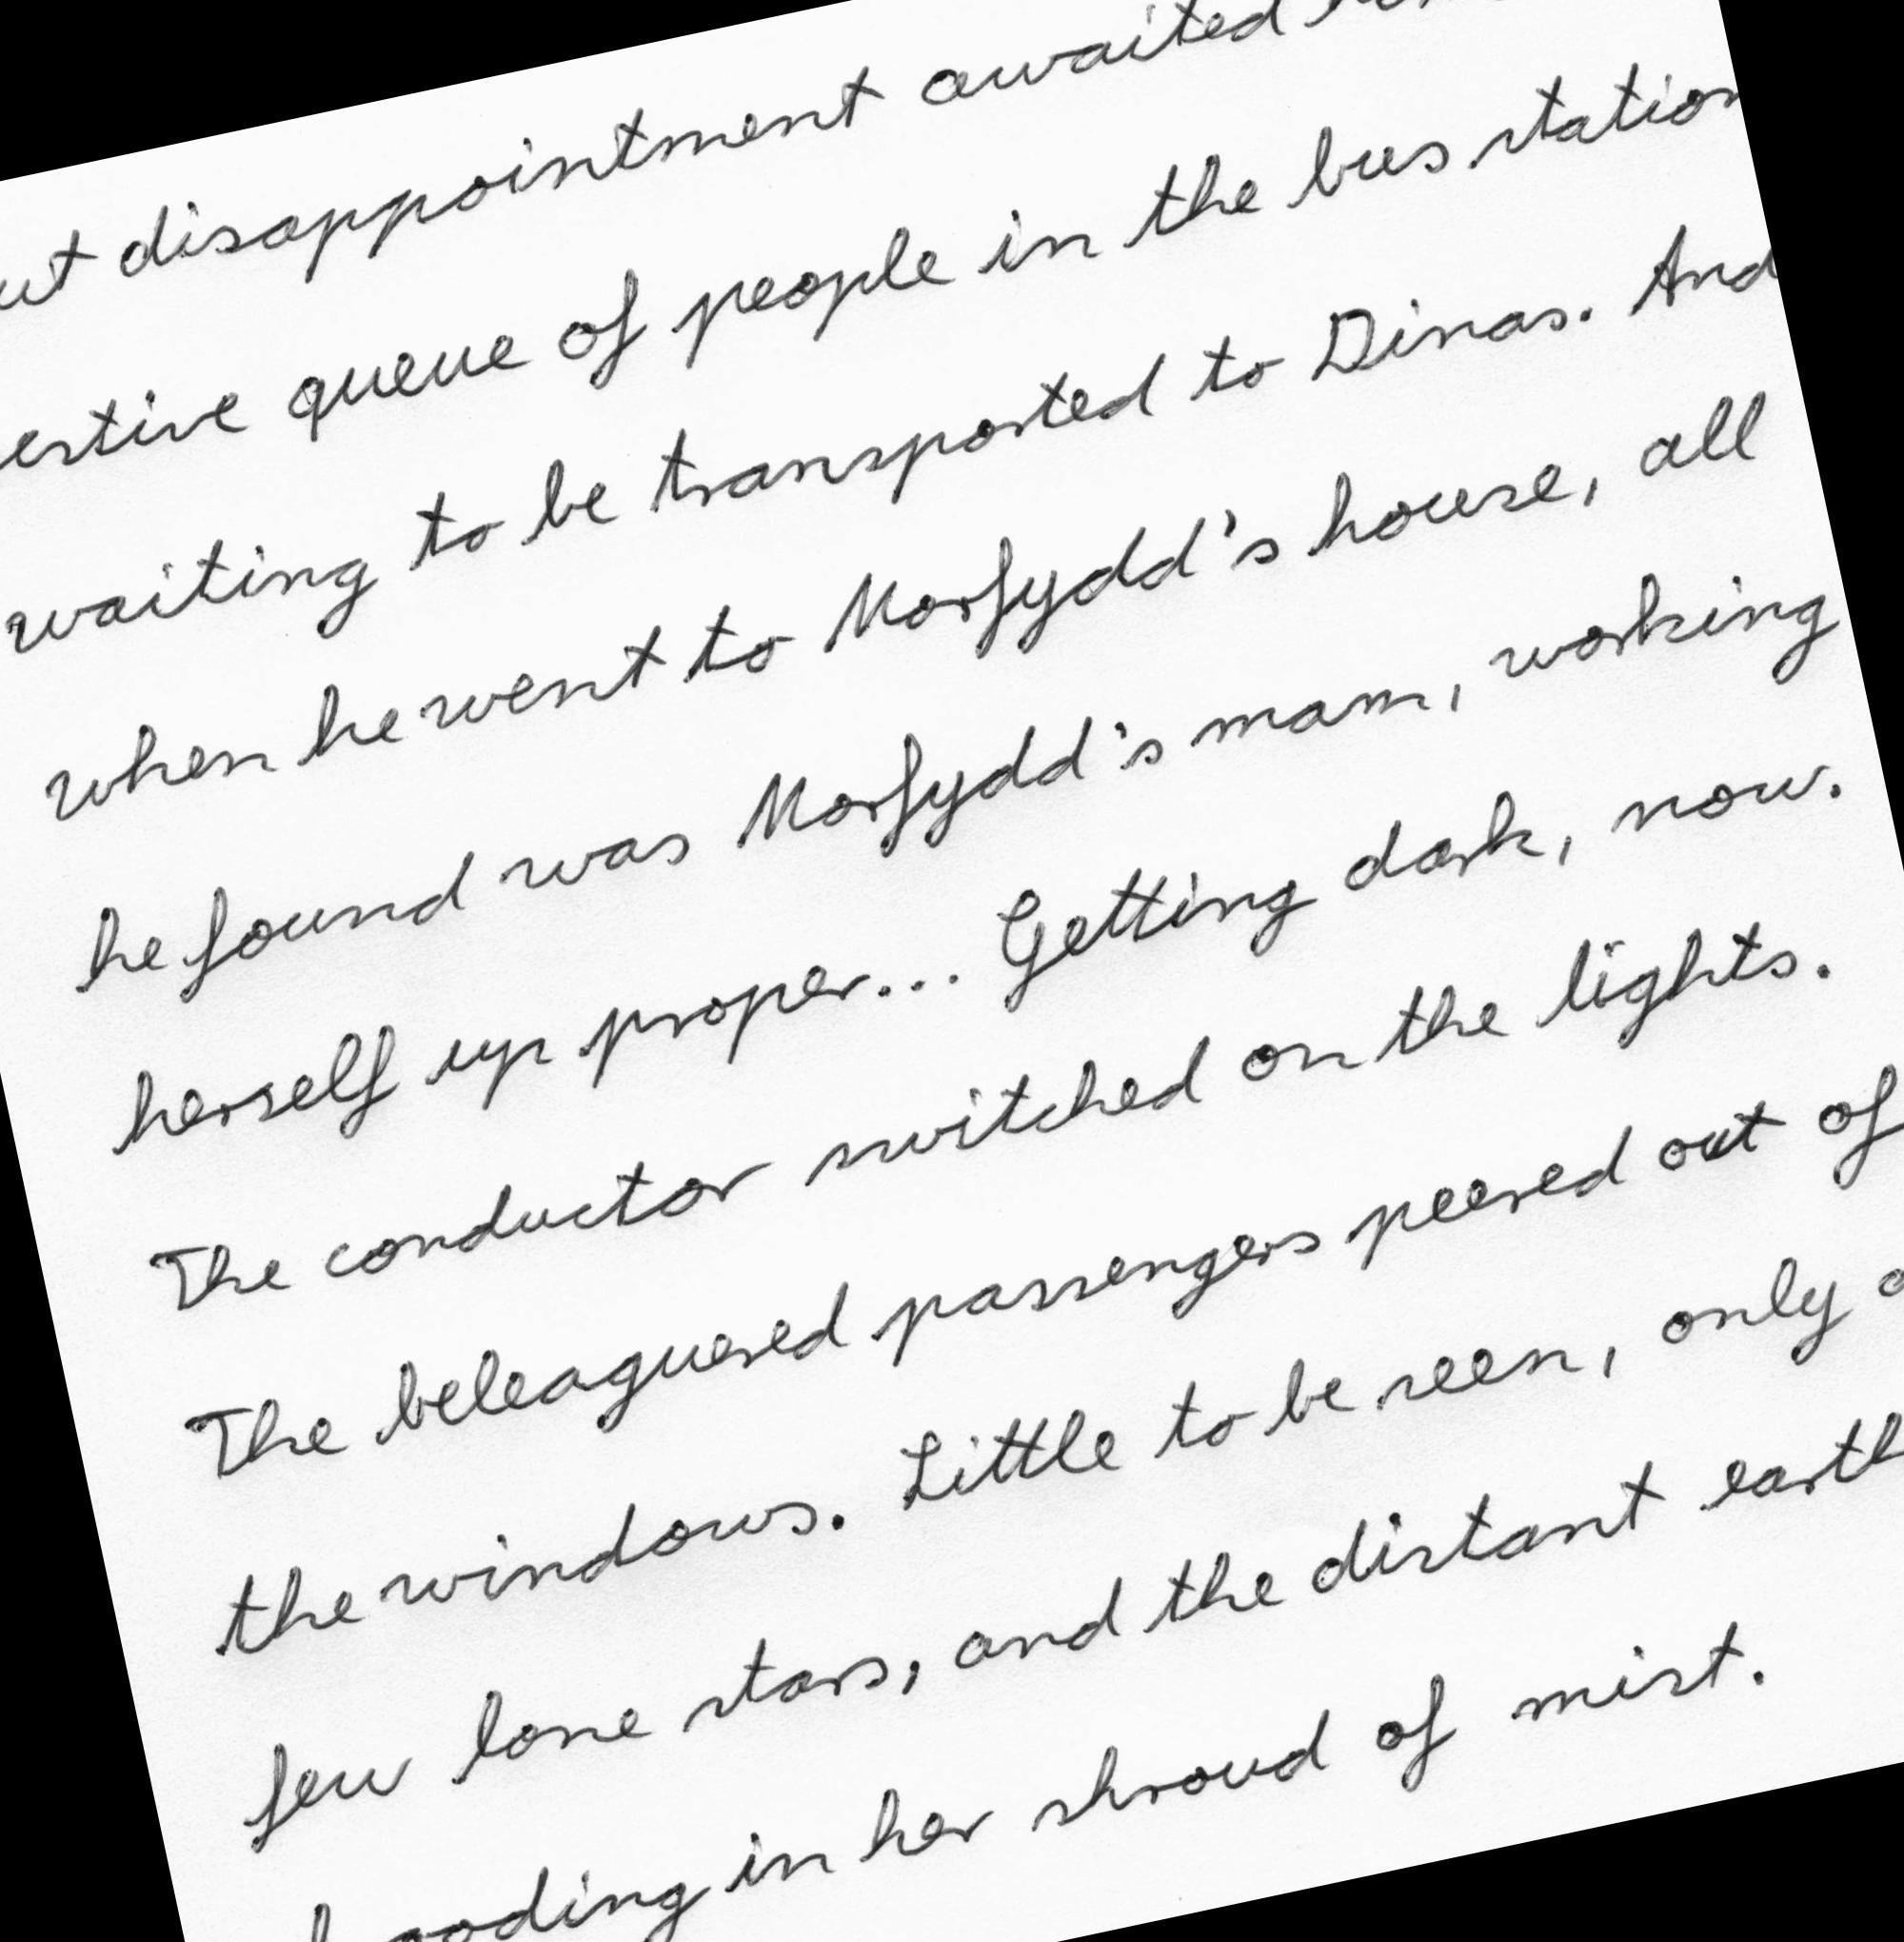 disappointment awaited
queue of people in the bus station
waiting to be transported to Dinas. And
when he went to Morfydd's house, all
he found was Morfydd's mam, working
herself up proper... Getting dark, now.
The conductor switched on the lights.
The beleaguered passengers peered out of
the windows. Little to be seen, only a
few lone stars, and the distant earth
brooding in her shroud of mist.